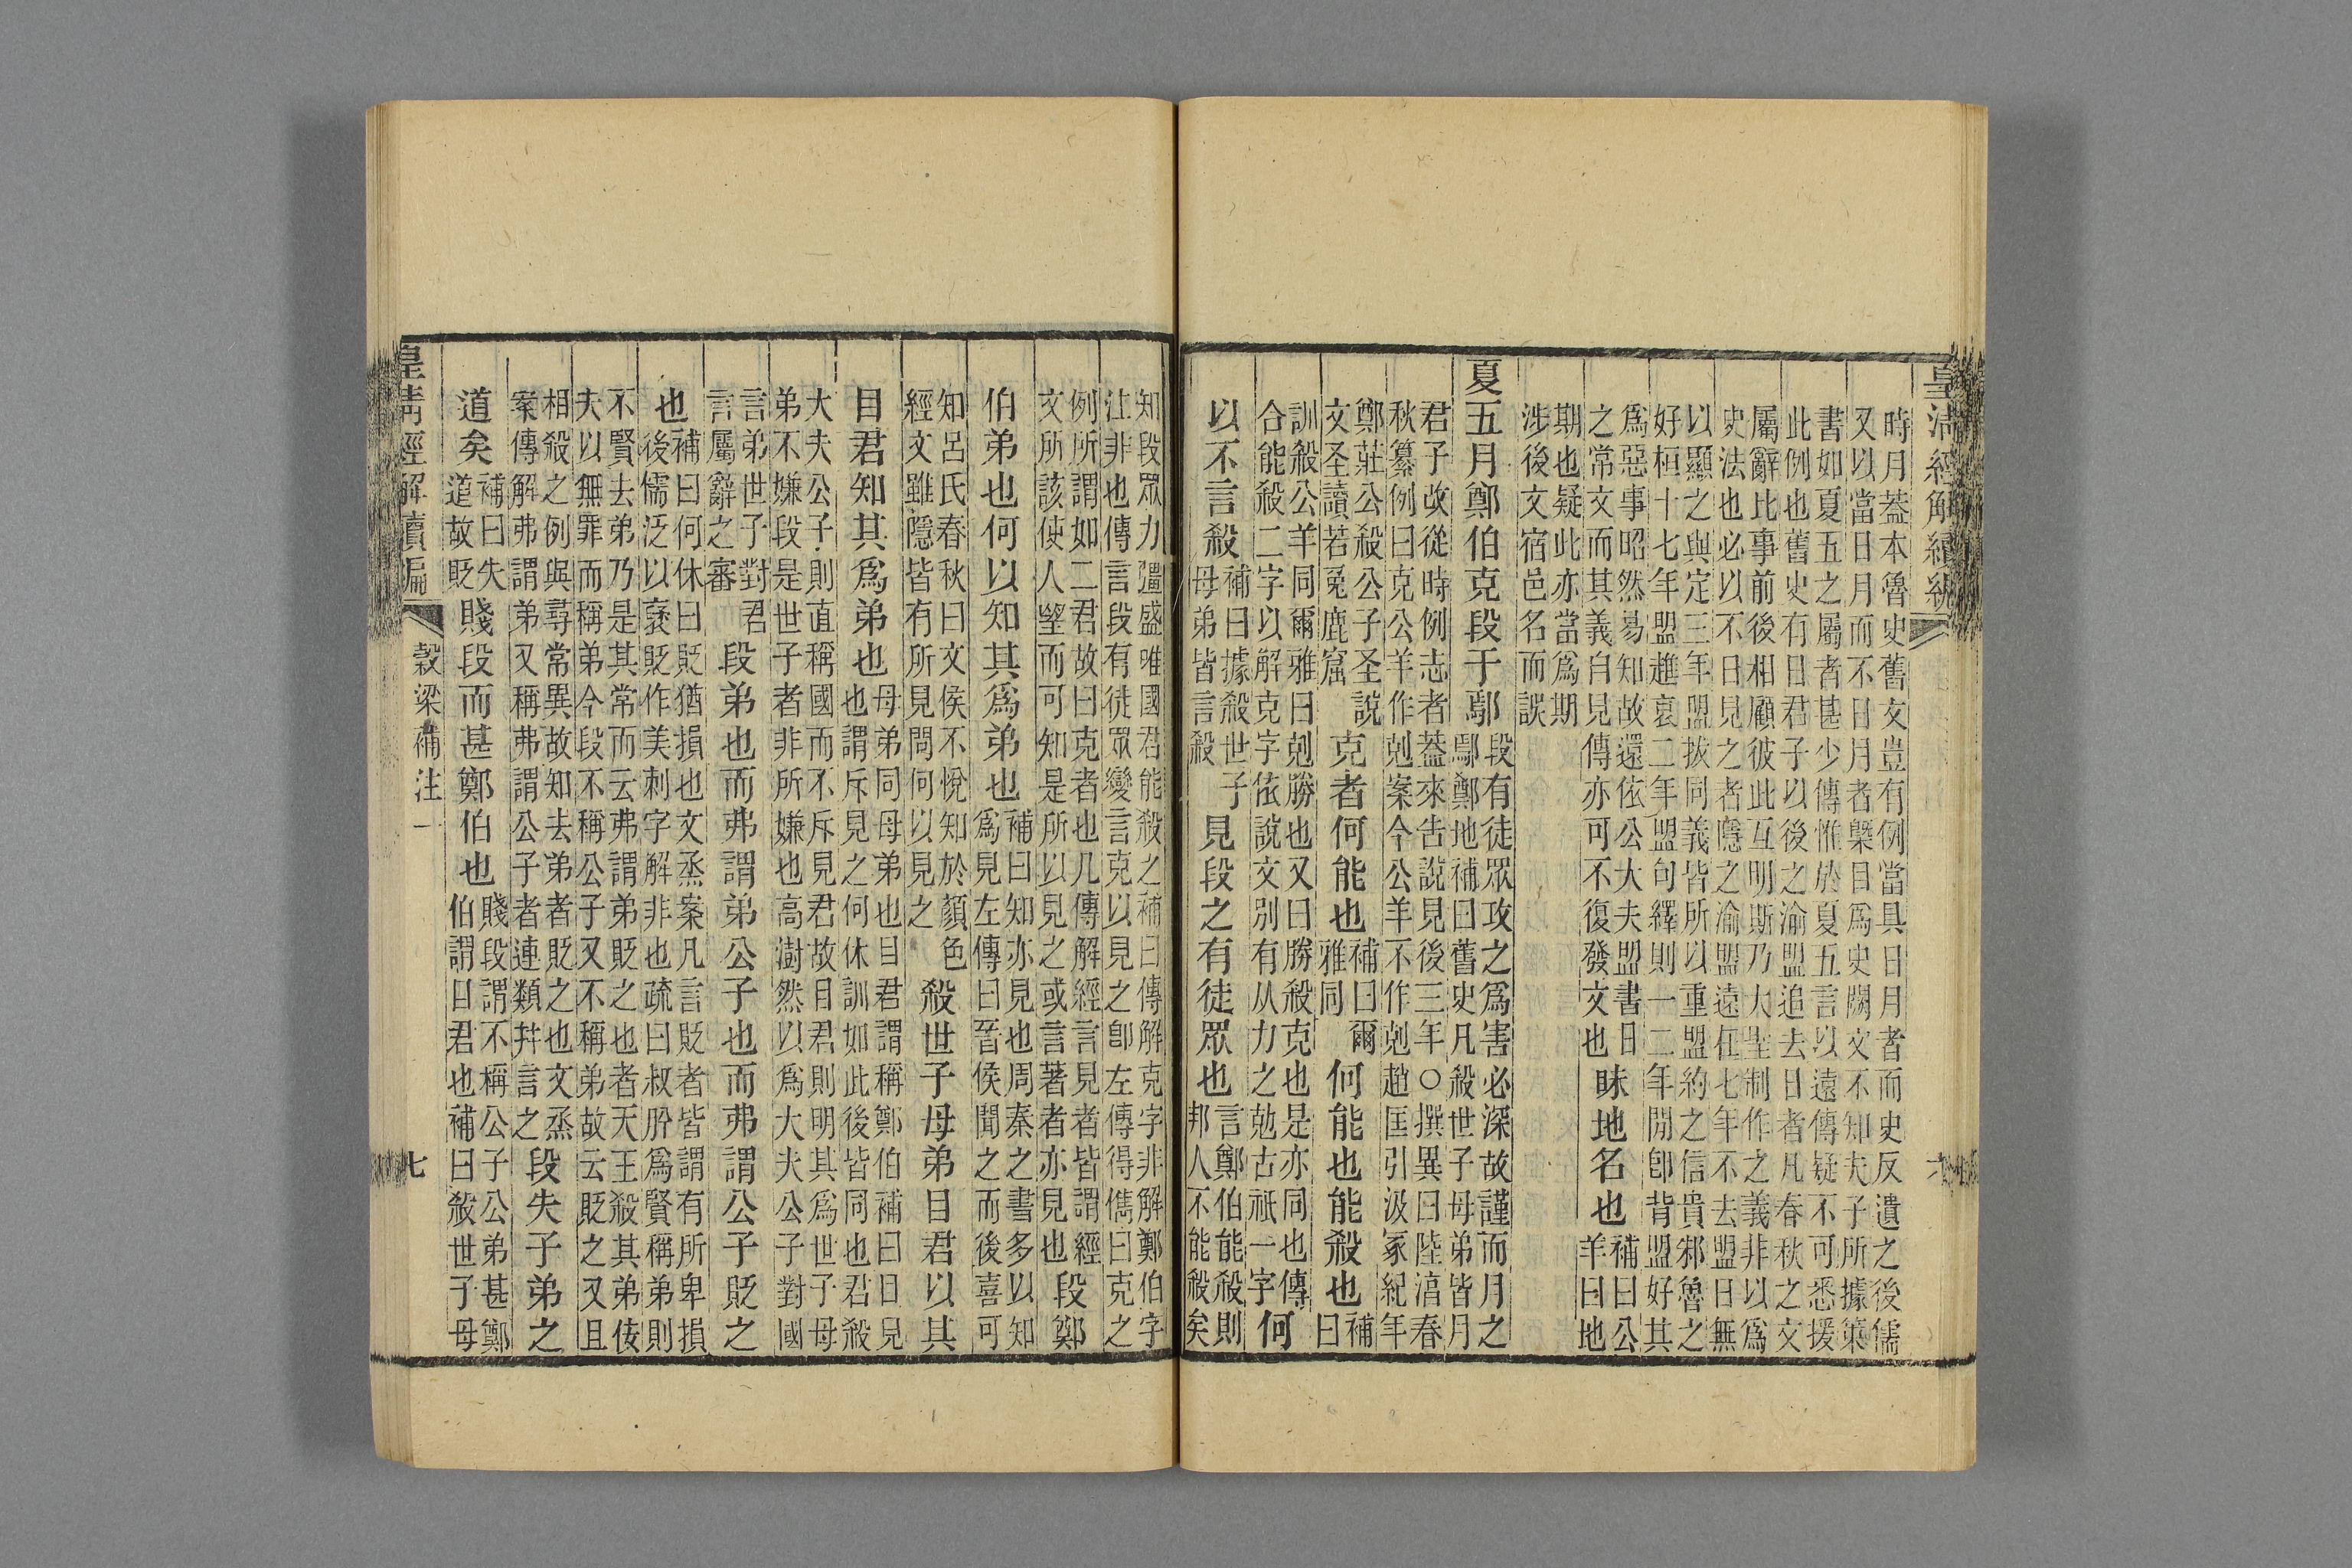 皇清經解續編
時月葢本魯史舊文豈有例當具日月者而史反遺之後儒
又以當日月而不日月者槩目爲史闕文不知夫子所據策
書如夏五之屬者甚少傳惟於夏五言以遠傳疑不可悉援
此例也舊史有日君子以後之渝盟追去日者凡春秋之文
屬辭比事前後相顧彼此互明斯乃大聖制作之義非以爲
史法也必以不日見之者隱之渝盟遠在七年不去盟日無
以顯之與定三年盟拔同義皆所以重盟約之信貴邾魯之
好桓十七年盟趡哀二年盟句繹則一二年閒卽背盟好其
爲惡事昭然易知故還依公大夫盟書日
之常文而其義自見傳亦可不復發文也
眛地名也
補曰公
羊曰地
期也疑此亦當爲期
涉後文宿邑名而誤
夏五月鄭伯克段于鄢
段有徒眾攻之爲害必深故謹而月之
鄢鄭地補曰舊史凡殺世子母弟皆月
君子改從時例志者葢來告說見後三年○撰異曰陸淳春
秋纂例曰克公羊作剋案今公羊不作剋趙匡引汲冢紀年
鄭莊公殺公子圣說
文圣讀若兔鹿窟
克者何能也
補曰爾
雅同
何能也能殺也
補
曰
訓殺公羊同爾雅曰剋勝也又曰勝殺克也是亦同也傳
合能殺二字以解克字依說文別有从力之勊古祇一字
何
以不言殺
補曰據殺世子
母弟皆言殺
見段之有徒眾也
言鄭伯能殺則
邦人不能殺矣
六
知段眾力彊盛唯國君能殺之補曰傳解克字非解鄭伯字
注非也傳言段有徒眾變言克以見之卽左傳得儁曰克之
例所謂如二君故曰克者也凡傳解經言見者皆謂經
文所該使人朢而可知是所以見之或言著者亦見也
段鄭
伯弟也何以知其爲弟也
補曰知亦見也周秦之書多以知
爲見左傳曰晉侯聞之而後喜可
知呂氏春秋曰文侯不悅知於顏色
經文雖隱皆有所見問何以見之
殺世子母弟目君以其
目君知其爲弟也
母弟同母弟也目君謂稱鄭伯補曰目見
也謂斥見之何休訓如此後皆同也君殺
大夫公子則直稱國而不斥見君故目君則明其爲世子母
弟不嫌段是世子者非所嫌也高澍然以爲大夫公子對國
言弟世子對君
言屬辭之審
段弟也而弗謂弟公子也而弗謂公子貶之
也
補曰何休曰貶猶損也文烝案凡言貶者皆謂有所卑損
後儒泛以襃貶作美刺字解非也疏曰叔肸爲賢稱弟則
不賢去弟乃是其常而云弗謂弟貶之也者天王殺其弟佞
夫以無罪而稱弟今段不稱公子又不稱弟故云貶之又且
相殺之例與尋常異故知去弟者貶之也文烝
案傳解弗謂弟又稱弗謂公子者連類幷言之
段失子弟之
道矣
補曰失
道故貶
賤段而甚鄭伯也
賤段謂不稱公子公弟甚鄭
伯謂目君也補曰殺世子母
皇清經解續編
穀梁補注一
七